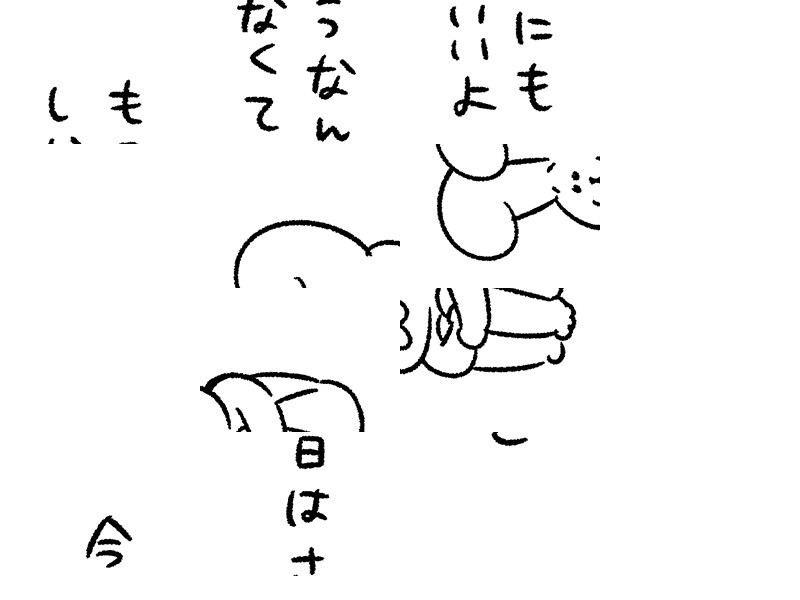 にも
いいよ
なん
なくて
も
し
日は
今